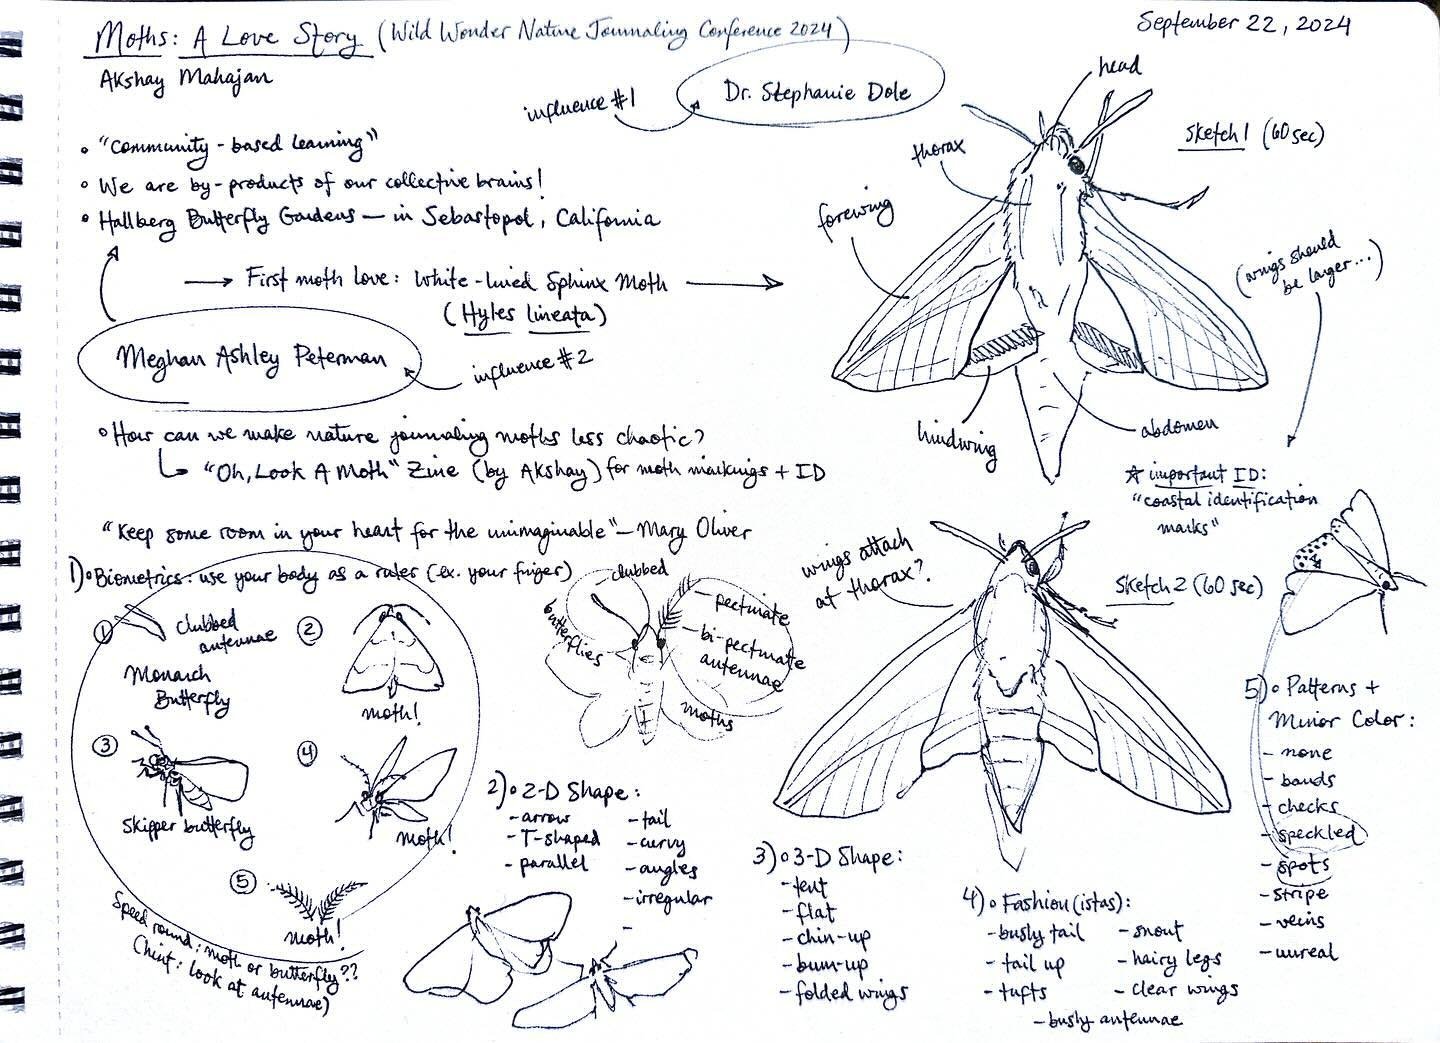 Moths: A Love Story (Wild Wonder Nature Journaling Conference 2024)
September 22, 2024
Akshay Mahajan
influence #1
Dr. Stephanie Dole
head
thorax
sketch 1 (60 sec)
forewing
◦ "community-based learning"
◦ We are by-products of our collective brains!
◦ Hallberg Butterfly Gardens — in Sebastopol, California
→ First moth love: White-lined Sphinx Moth →
(Hyles lineata)
(wings should
be larger...)
Meghan Ashley Peterman
influence #2
hindwing
abdomen
◦ How can we make nature journaling moths less chaotic?
"Oh, Look A Moth" Zine (by Akshay) for moth markings + ID
☆ important ID:
"coastal identification
marks"
"Keep some room in your heart for the unimaginable" — Mary Oliver
wings attach
at thorax?
sketch 2 (60 sec)
1) ◦ Biometrics: use your body as a ruler (ex. your finger)
① clubbed
antennae
Monarch
Butterfly
② moth!
③ skipper butterfly
④ moth!
⑤ moth!
Speed round: moth or butterfly??
(hint: look at antennae)
clubbed
butterflies
- pectinate
- bi-pectinate
antennae
moths
2) ◦ 2-D Shape:
- arrow
- T-shaped
- parallel
- tail
- curvy
- angles
- irregular
-
3) ◦ 3-D Shape:
- tent
- flat
- chin-up
- bum-up
- folded wings
4) ◦ Fashion(istas):
- bushy tail
- tail up
- tufts
- snout
- hairy legs
- clear wings
- bushy antennae
5) ◦ Patterns +
Minor Color:
- none
- bands
- checks
- speckled
- spots
- stripe
- veins
- unreal